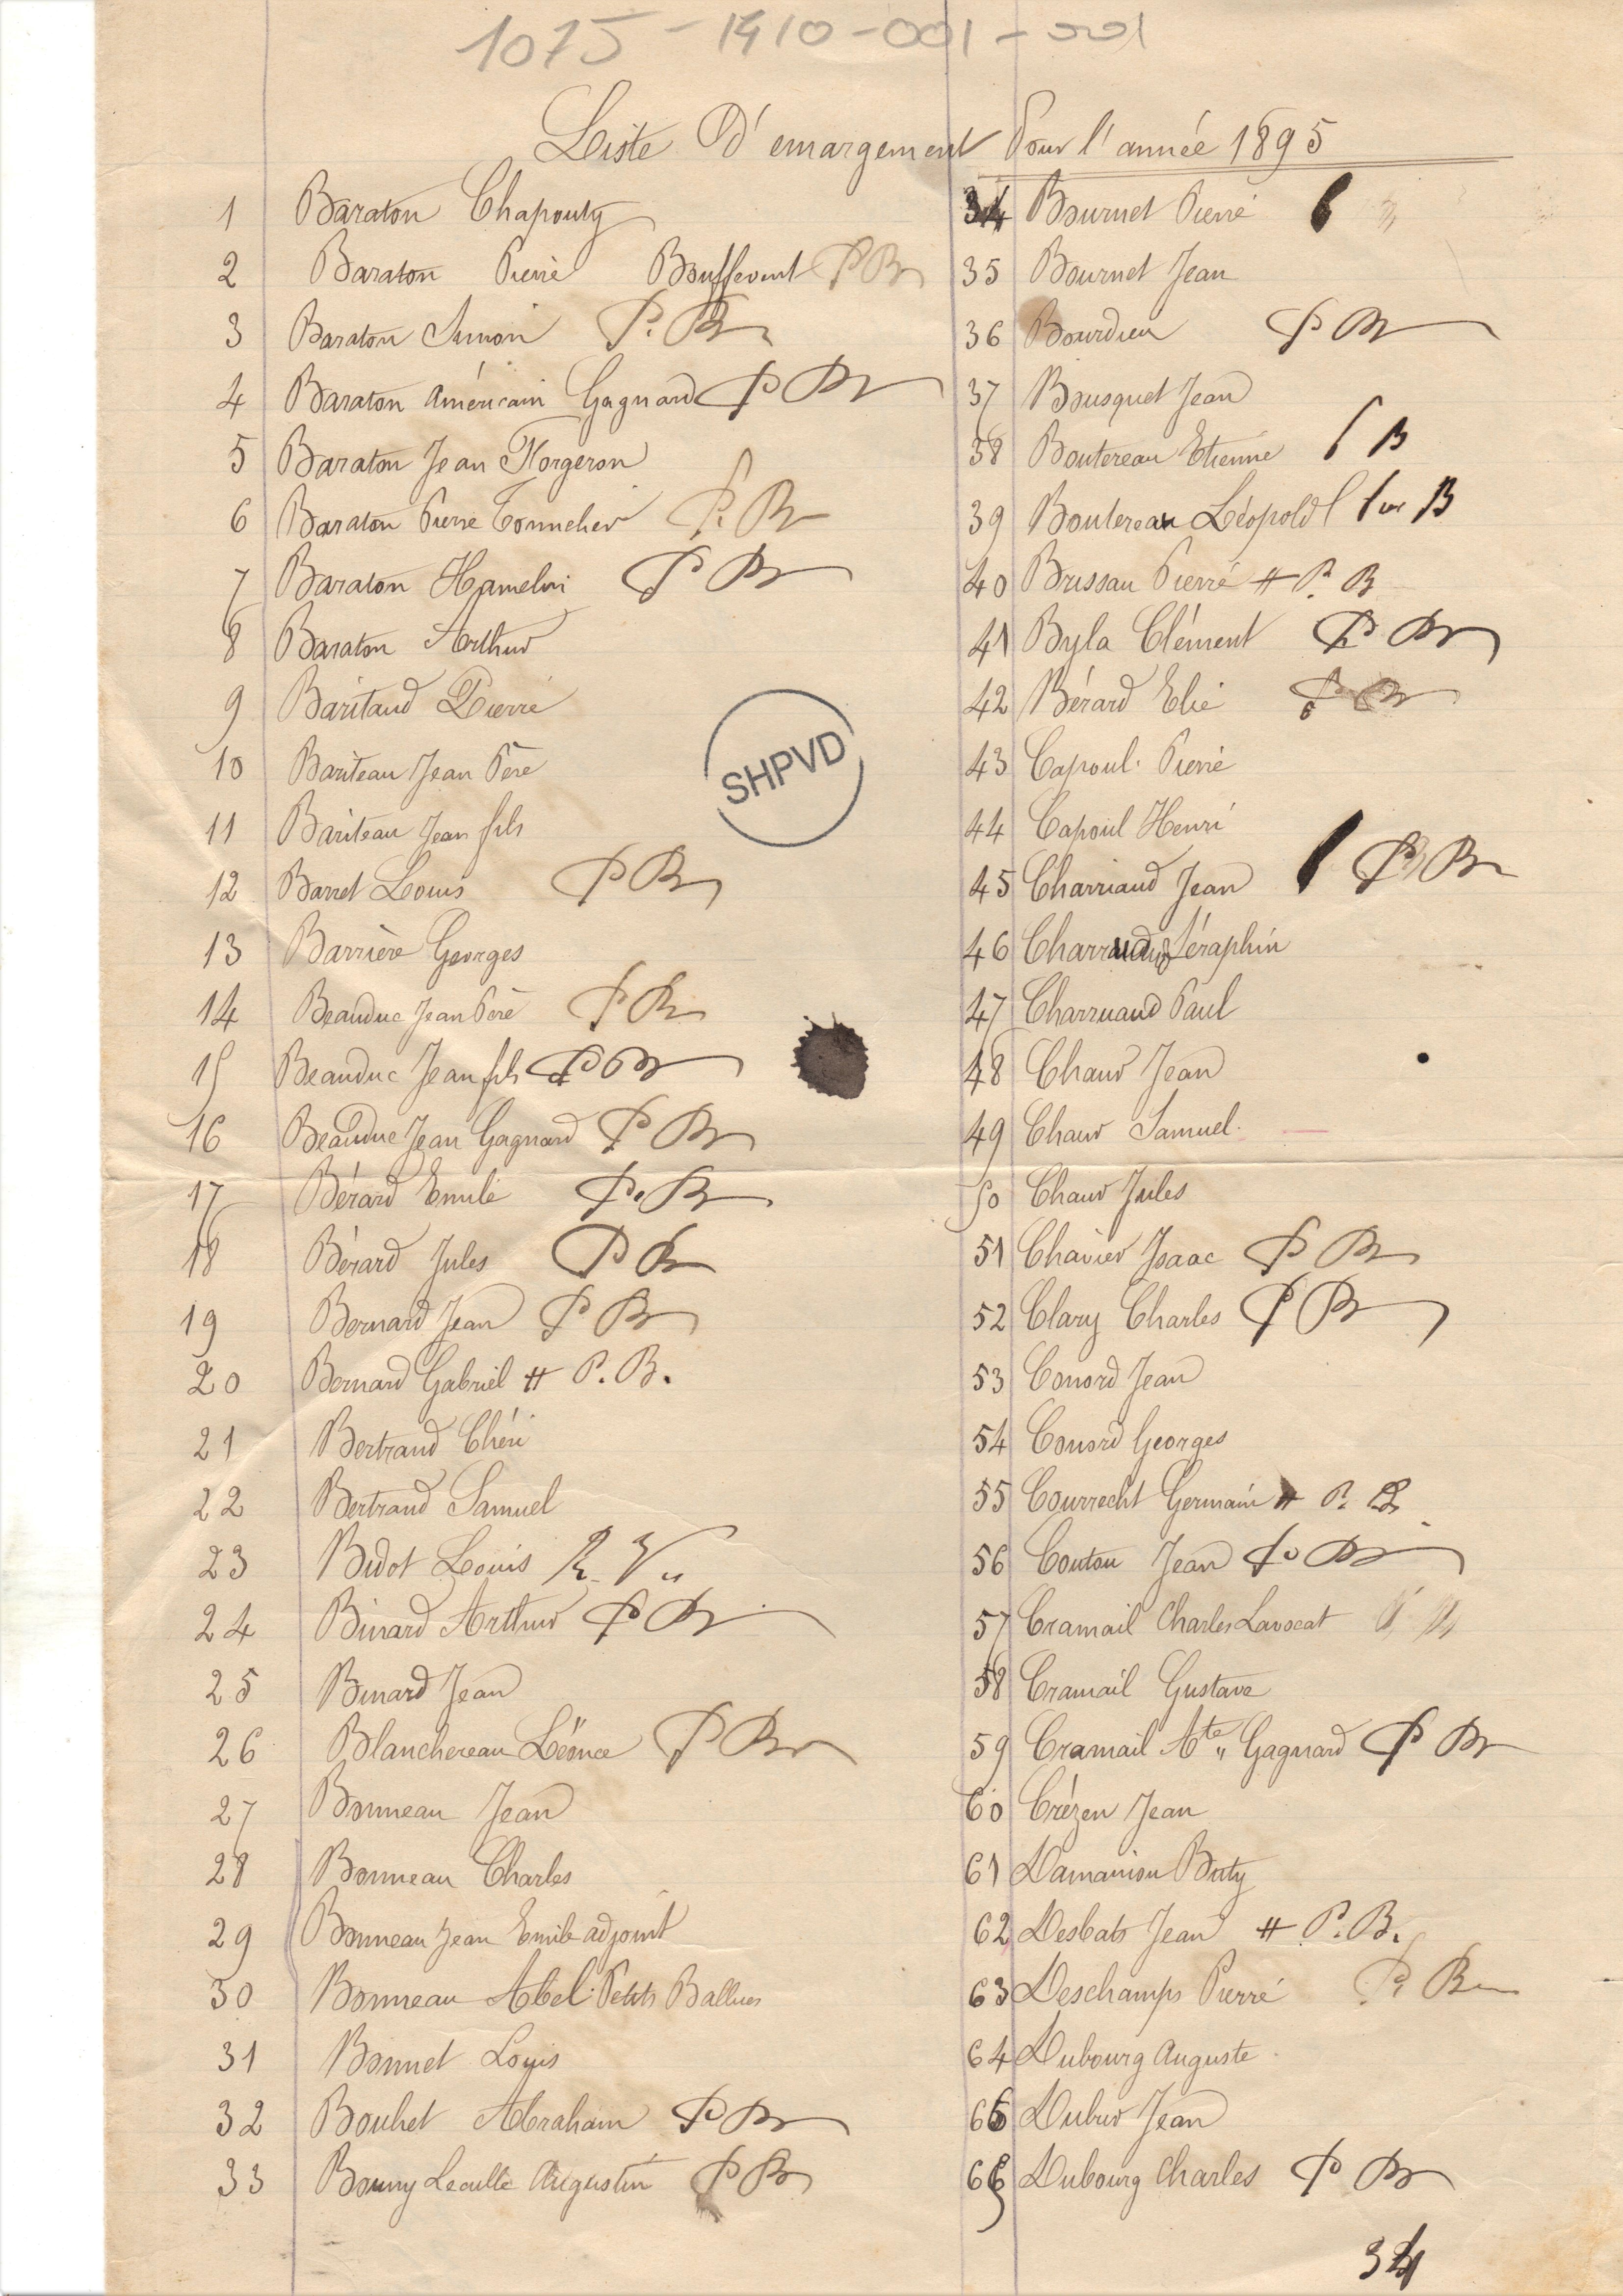 1075-1910-001-001
Liste D'emargement Pour l'année 1895
1 Baraton Chapouty
2 Baraton Pierre Bouffevent PB
3 Baraton Simon P. B
4 Baraton Américain Gagnard PB
5 Baraton Jean Forgeron
6 Baraton Pierre Tonnelier P. B
7 Baraton Hamelin PB
8 Baraton Arthur
9 Baritaud Pierre
10 Bariteau Jean Père
11 Bariteau Jean fils
12 Barret Louis PB
13 Barrière Georges
14 Beauduc Jean Père PB
15 Beauduc Jean fils PB
16 Beauduc Jean Gagnard PB
17 Bérard Emile P. B
18 Bérard Jules PB
19 Bernard Jean PB
20 Bernard Gabriel # P. B.
21 Bertrand Chéri
22 Bertrand Samuel
23 Bidot Louis
24 Binard Arthur PB
25 Binard Jean
26 Blanchereau Léonce PB
27 Bonneau Jean
28 Bonneau Charles
29 Bonneau Jean Emile adjoint
30 Bonneau Abel Petits Ballues
31 Bonnet Louis
32 Bouhet Abraham PB
33 Bouny Augustin PB
SHPVD
34 Bournet Pierre
35 Bournet Jean
36 Bourdieu PB
37 Bousquet Jean
38 Boutereau Etienne P B
39 Boutereau Léopold B
40 Brissau Pierre # P. B
41 Byla Clément PB
42 Bérard Elie PB
43 Capoul Pierre
44 Capoul Henri
45 Charriaud Jean PB
46 Séraphin
47 Charruaud Paul
48 Chauv Jean
49 Chauv Samuel
50 Chauv Jules
51 Isaac PB
52 Clary Charles PB
53 Conord Jean
54 Conord Georges
55 Courrecht Germain # P. B
56 Coutou Jean PB
57 Cramail Charles Lavocat
58 Cramail Gustave
59 Cramail Ate Gagnard PB
60 Crézen Jean
61 Damanion Buty
62 Desbats Jean # P. B.
63 Deschamps Pierre P. B
64 Dubourg Auguste
65 Jean
66 Dubourg Charles PB
34